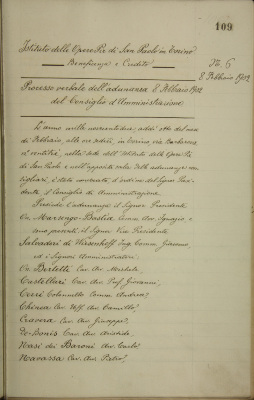 109
Istituto delle Opere Pie di San Paolo in Torino
Beneficenza e Credito
N. 6
8 Febbraio 1902
Processo verbale dell'adunanza 8 Febbraio 1902
del Consiglio d'Amministrazione
L'anno mille novecentodue, addì otto del mese
di Febbraio, alle ore sedici, in Torino, via
nella sede dell'Istituto delle Opere Pie
di San Paolo e nell'apposita sala delle adunanze con-
sigliari, è stato convocato, d'ordine del Signor Presi-
dente il Consiglio di Amministrazione.
Presiede l'adunanza il Signor Presidente
On. Marsengo-Bastia Comm. Avv. Ignazio e
sono presenti il Signor Vice Presidente
Salvadori di Wiesenhoff Ing. Comm. Giacomo,
ed i Signori Amministratori:
Cav. Av.
Castellari Cav. Avv. Prof. Giovanni,
Cerri Colonnello Comm. Andrea,
Chinea Cav. Uff. Avv. Camillo,
Cravera Cav. Av. Giuseppe,
De-Bonis Cav. Avv. Aristide,
Nasi dei Baroni Av. Carlo
Navassa Cav. Avv. Pietro,